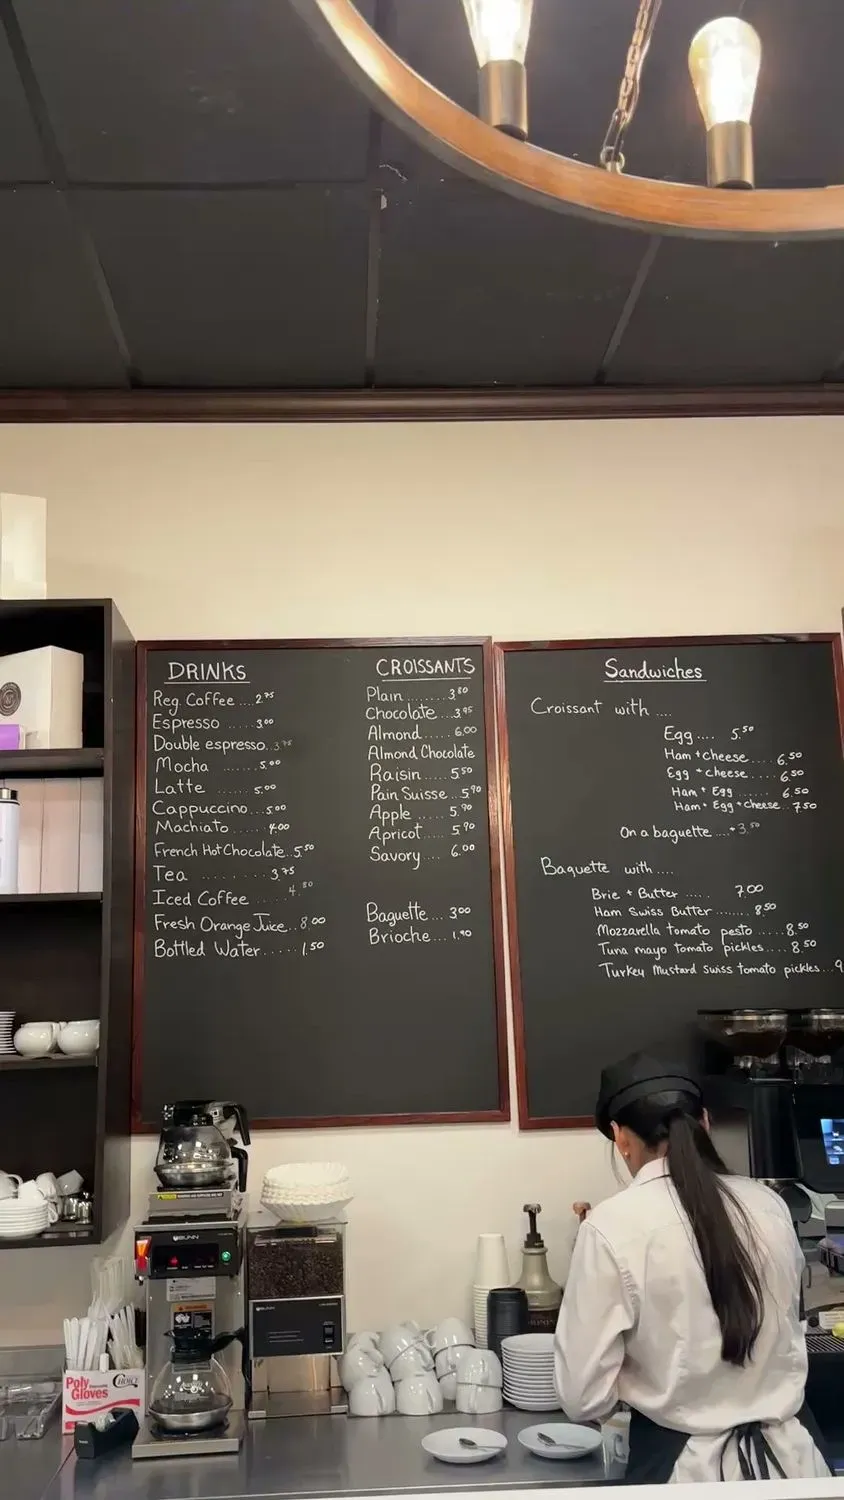 DRINKS
Reg. Coffee .... 2.75
Espresso ..... 3.00
Double espresso. 3.75
Mocha ....... 5.00
Latte ....... 5.00
Cappuccino ... 5.00
Machiato ..... 4.00
French Hot Chocolate.. 5.50
Tea ......... 3.75
Iced Coffee .... 4.80
Fresh Orange Juice.. 8.00
Bottled Water ..... 1.50
CROISSANTS
Plain ........ 3.80
Chocolate ... 3.95
Almond ..... 6.00
Almond Chocolate
Raisin ..... 5.50
Pain Suisse .. 5.90
Apple ..... 5.90
Apricot .... 5.90
Savory .... 6.00
Baguette ... 3.00
Brioche ... 1.90
Sandwiches
Croissant with ....
Egg .... 5.50
Ham + cheese .... 6.50
Egg + cheese .... 6.50
Ham + Egg ....... 6.50
Ham + Egg + cheese.. 7.50
On a baguette .... + 3.50
Baguette with ....
Brie + Butter ..... 7.00
Ham Swiss Butter ....... 8.50
Mozzarella tomato pesto ..... 8.50
Tuna mayo tomato pickles .... 8.50
Turkey Mustard swiss tomato pickles ... 9
BUNN
BUNN
Poly
Gloves
CHOICE